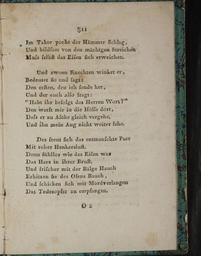 311
Im Takte pocht der Hämmer Schlag,
Und bildsam von den mächtgen Streichen
Muss selbst das Eisen sich erweichen.
Und zweien Knechten winket er,
Bedeutet sie und sagt:
Den ersten, den ich sende her,
Und der euch also fragt:
"Habt ihr befolgt des Herren Wort?"
Den werft mir in die Hölle dort,
Dass er zu Asche gleich vergehe,
Und ihn mein Aug nicht weiter sehe.
Des freut sich das entmenschte Paar
Mit roher Henkerslust.
Denn fühllos wie das Eisen war
Das Herz in ihrer Brust,
Und frischer mit der Bälge Hauch
Erhitzen sie des Ofens Bauch,
Und schicken sich mit Mordverlangen
Das Todesopfer zu empfangen.
O 2